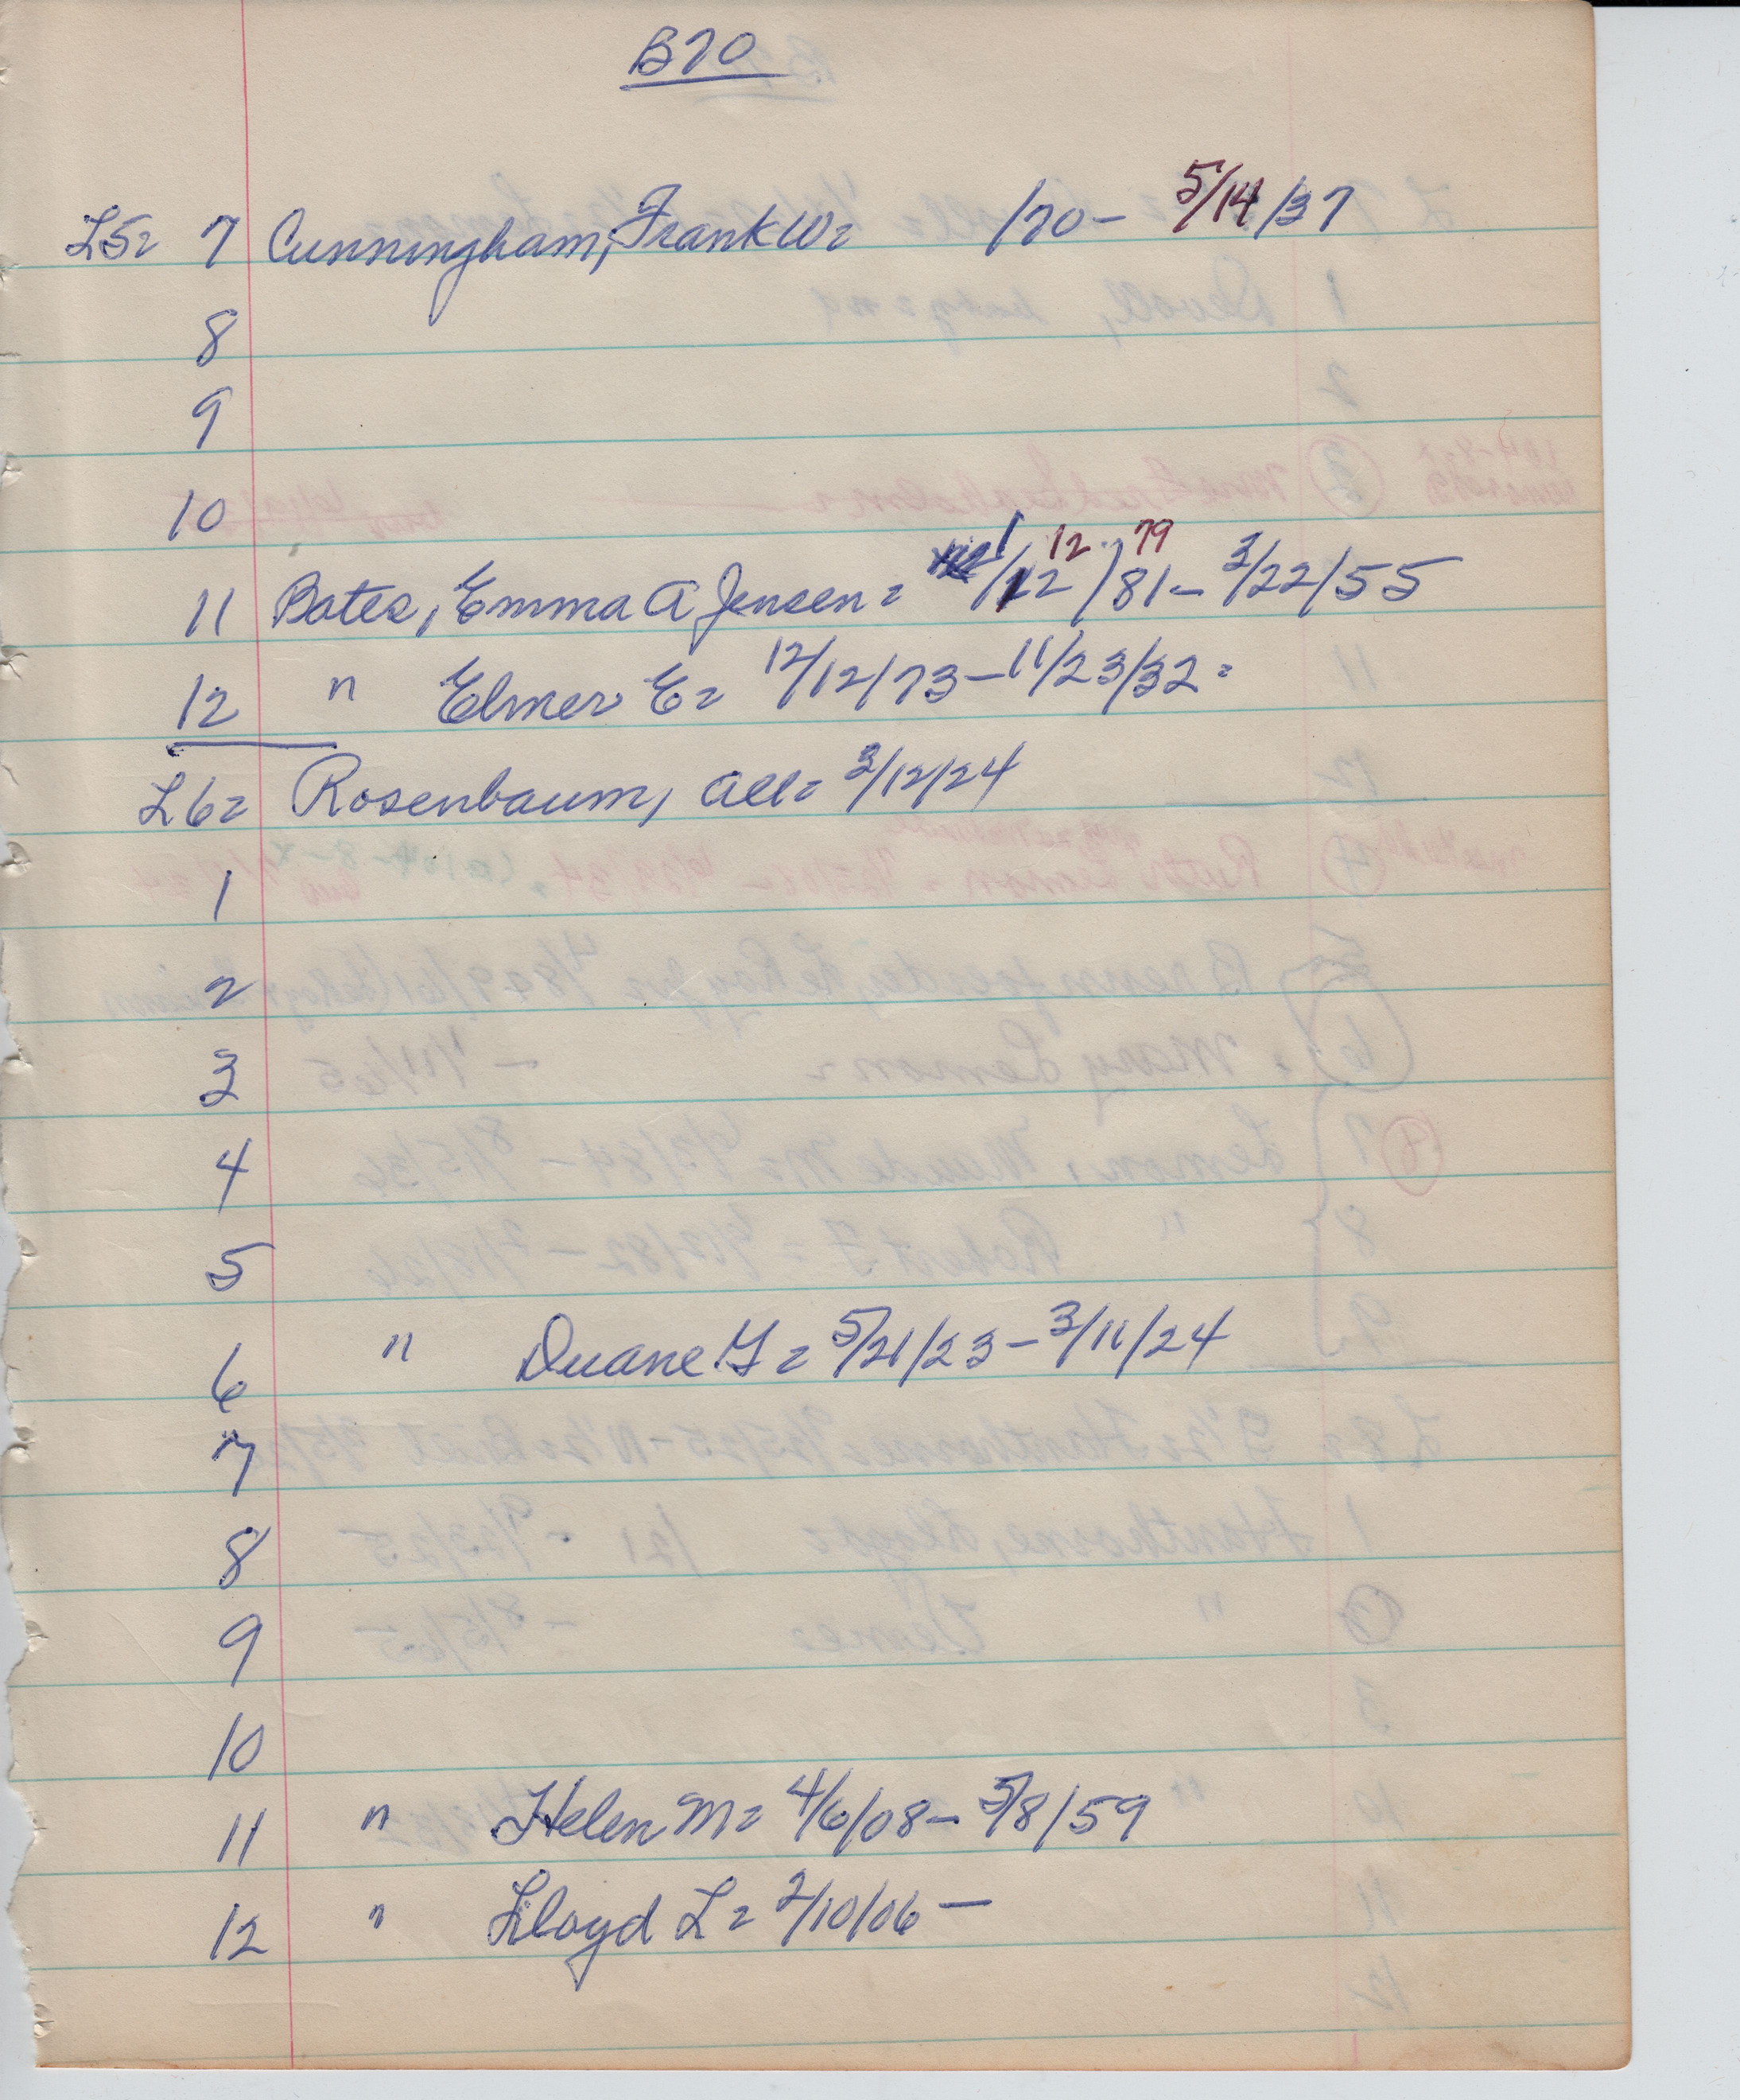 B70
L5= 7 Cunningham, Frank W= /70- 5/14/37
8
9
10
12 79
11 Bates, Emma A Jensen= 1/12/81- 3/22/55
12 " Elmer E= 12/12/73-11/23/32=
L6= Rosenbaum, all= 3/12/24
1
2
3
4
5
6 " Duane G= 5/21/23-3/11/24
7
8
9
10
11 " Helen M= 4/6/08- 5/8/59
12 " Lloyd L= 2/10/06-